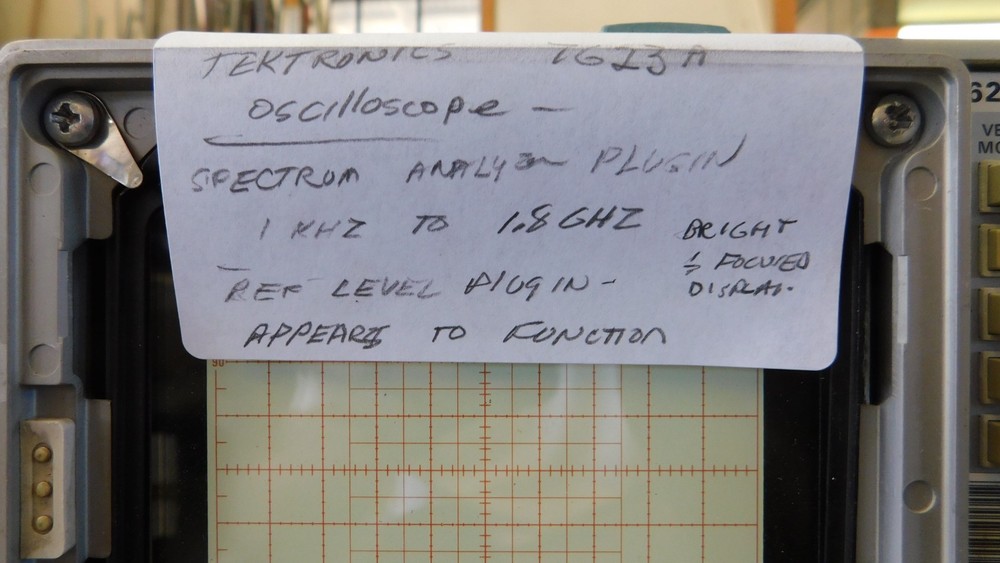 TEKTRONICS 7613A
OSCILLOSCOPE —
SPECTRUM ANALYZER PLUGIN
1 KHZ TO 1.8 GHZ
BRIGHT
& FOCUSED
DISPLAY.
REF LEVEL PLUGIN -
APPEARS TO FUNCTION
90
62
VE
MO